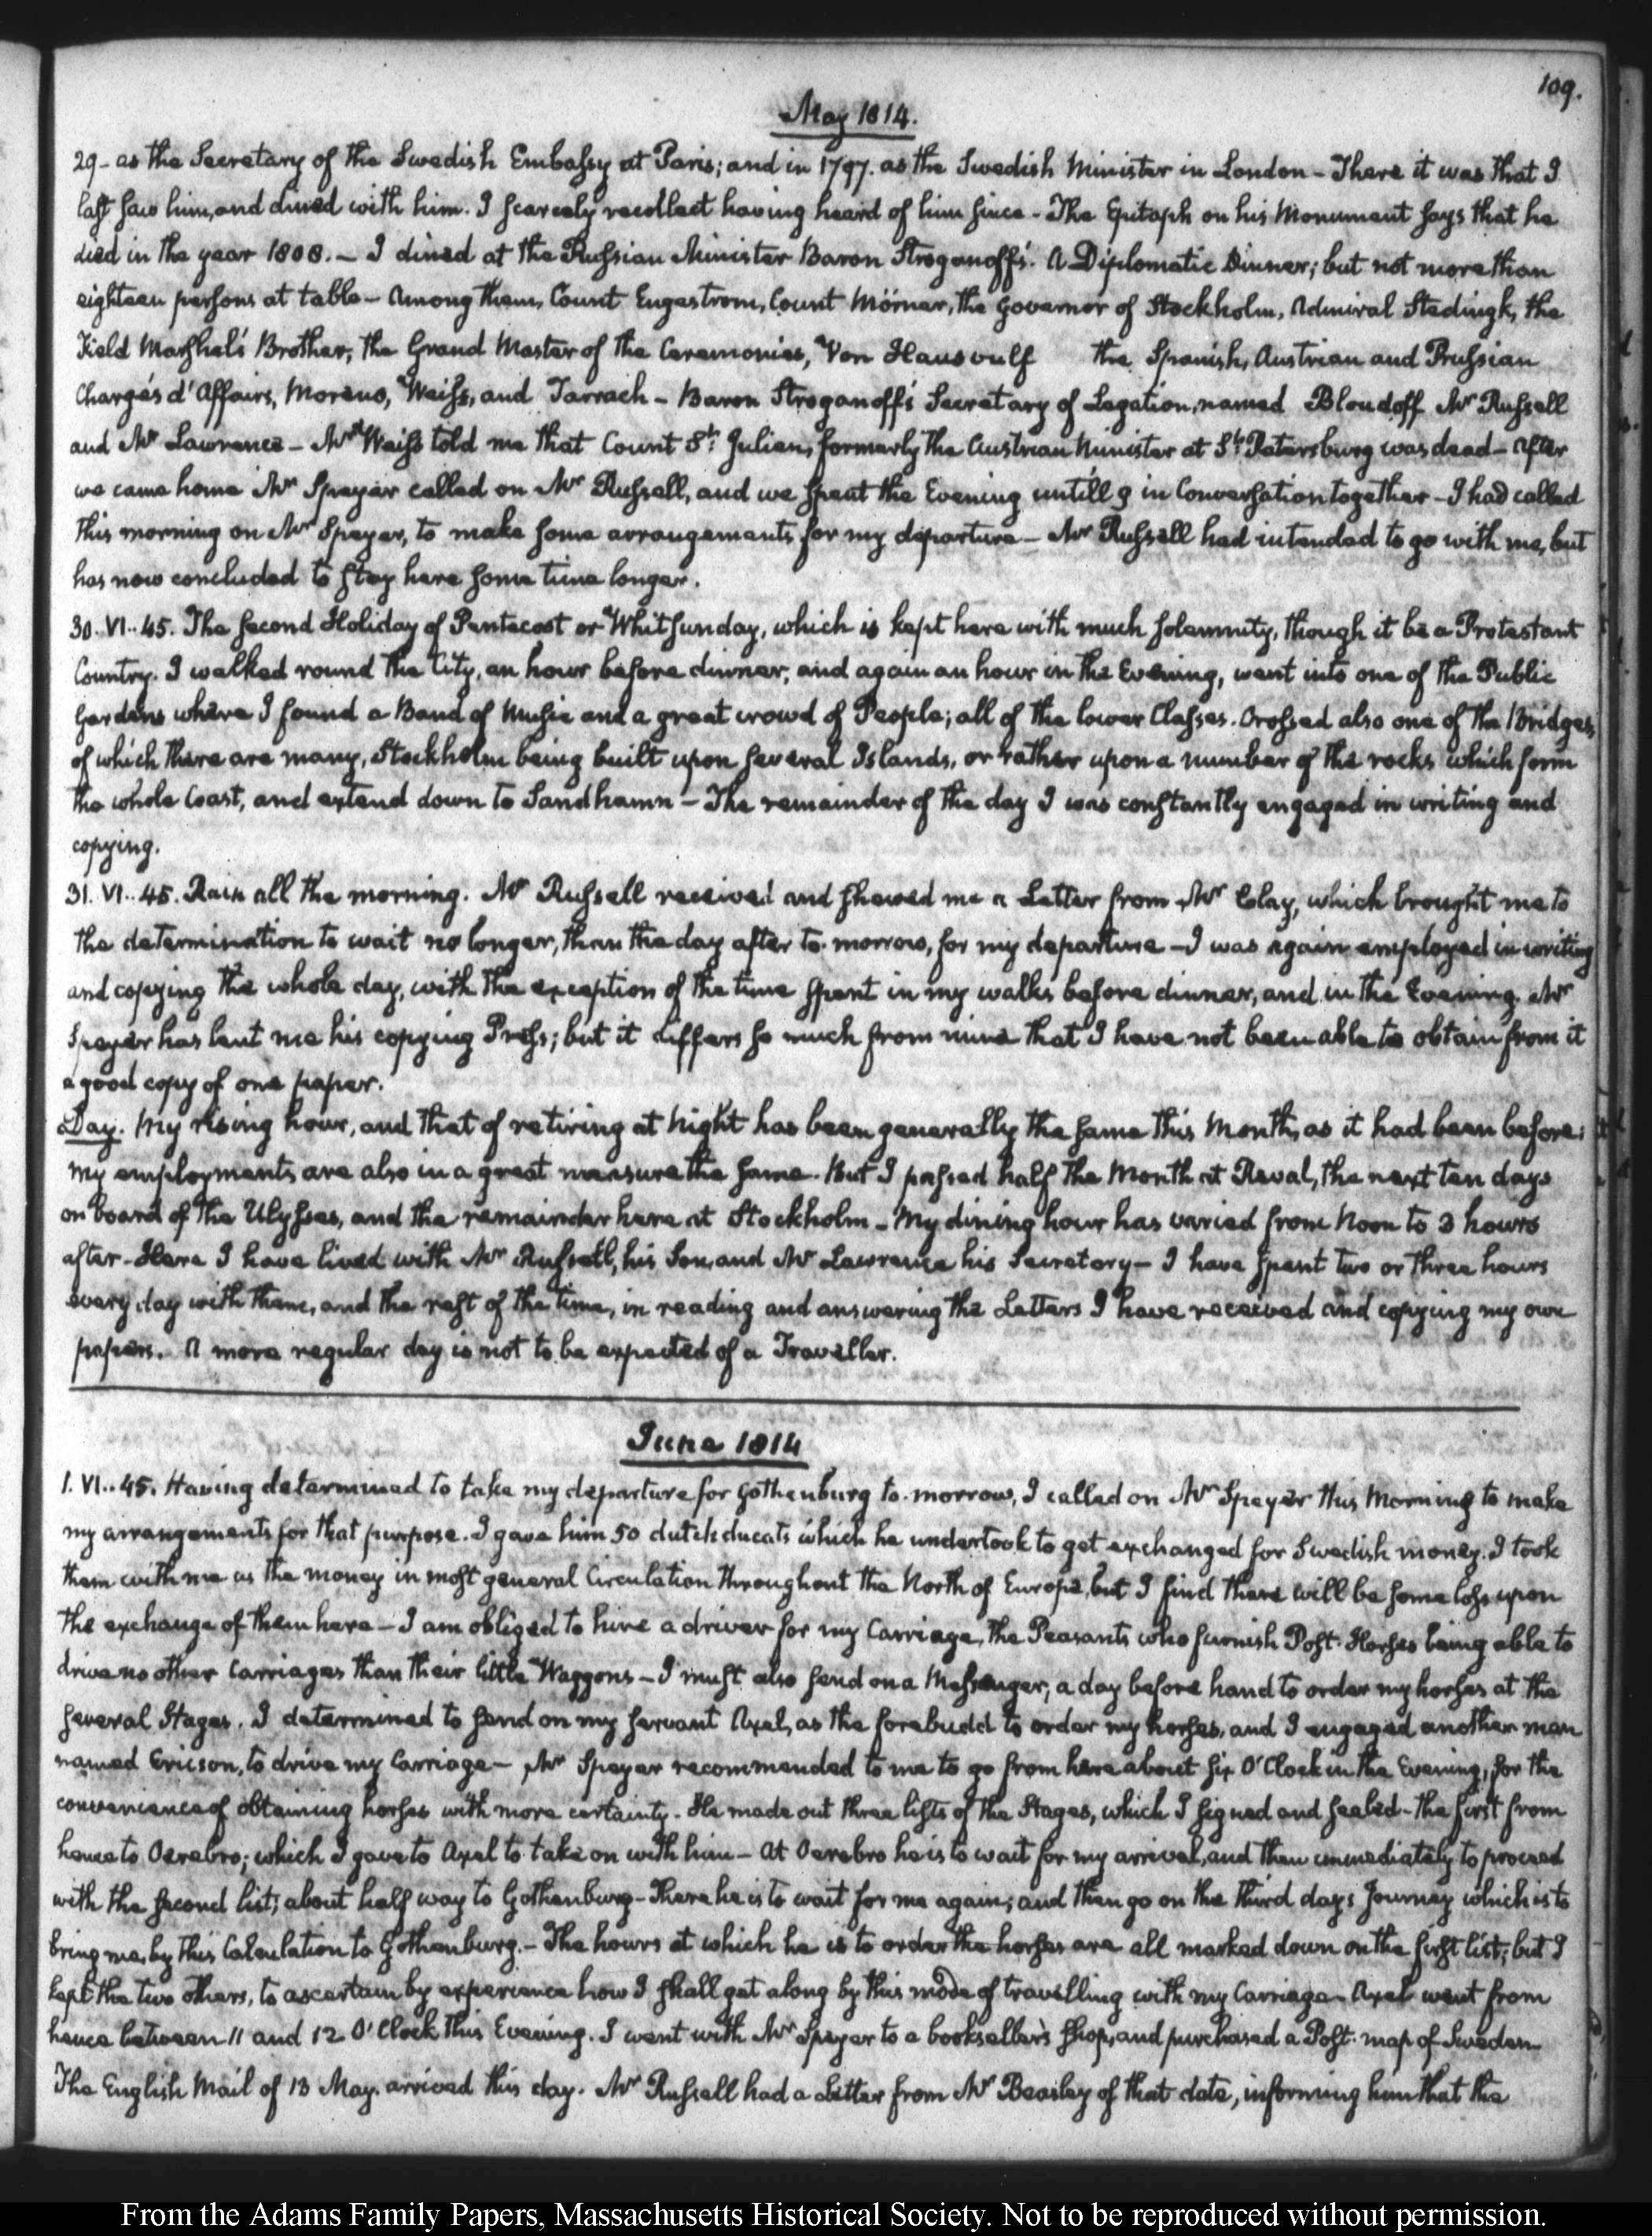 109.
May 1814.
29- as the Secretary of the Swedish Embassy at Paris; and in 1797. as the Swedish Minister in London - There it was that I
last saw him, and dined with him. I scarcely recollect having heard of him since - The Epitaph on his Monument says that he
died in the year 1808. - I dined at the Russian Minister Baron Stroganoff's. A Diplomatic Dinner; but not more than
eighteen persons at table - Among them, Count Engestrom, Count Mörner, the Governor of Stockholm, Admiral Stedingk, the
Field Marshal's Brother, the Grand Master of the Ceremonies, Von Hauswulf the Spanish, Austrian and Prussian
Chargés d'Affairs, Moreno, Weiss, and Tarrach - Baron Stroganoff's Secretary of Legation, named Bloudoff Mr Russell
and Mr Lawrence - Mr Weiss told me that Count St. Julien, formerly the Austrian Minister at St. Petersburg was dead - After
we came home Mr Speyer called on Mr Russell, and we spent the Evening untill 9 in Conversation together - I had called
this morning on Mr Speyer, to make some arrangements for my departure - Mr Russell had intended to go with me, but
has now concluded to stay here some time longer.
30. VI..45. The second Holiday of Pentecost or Whitsunday, which is kept here with much solemnity, though it be a Protestant
Country. I walked round the City, an hour before dinner, and again an hour in the Evening, went into one of the Public
Gardens where I found a Band of Music and a great crowd of People; all of the lower Classes. Crossed also one of the Bridges,
of which there are many, Stockholm being built upon several Islands, or rather upon a number of the rocks which form
the whole Coast, and extend down to Sandhamn - The remainder of the day I was constantly engaged in writing and
copying.
31. VI..45. Rain all the morning. Mr Russell received and shewed me a Letter from Mr Clay, which brought me to
the determination to wait no longer, than the day after to-morrow, for my departure - I was again employed in writing
and copying the whole day, with the exception of the time spent in my walks before dinner, and in the Evening. Mr
Speyer has lent me his copying Press; but it differs so much from mine that I have not been able to obtain from it
a good copy of one paper.
Day. My rising hour, and that of retiring at Night has been generally the same this Month, as it had been before:
my employments are also in a great measure the same. But I passed half the Month at Reval, the next ten days
on board of the Ulysses, and the remainder here at Stockholm - My dining hour has varied from Noon to 3 hours
after - Here I have lived with Mr Russell, his Son, and Mr Lawrence his Secretary - I have spent two or three hours
every day with them, and the rest of the time, in reading and answering the Letters I have received and copying my own
papers. A more regular day is not to be expected of a Traveller.
June 1814
1. VI..45. Having determined to take my departure for Gothenburg to-morrow, I called on Mr Speyer this Morning to make
my arrangements for that purpose. I gave him 50 dutch ducats which he undertook to get exchanged for Swedish money. I took
them with me as the money in most general Circulation throughout the North of Europe, but I find there will be some loss upon
the exchange of them here - I am obliged to hire a driver for my Carriage, the Peasants who furnish Post-Horses being able to
drive no other Carriages than their little Waggons - I must also send on a Messenger, a day before hand to order my horses at the
several Stages. I determined to send on my servant Axel, as the forebudd to order my horses, and I engaged another man
named Ericson, to drive my Carriage - Mr Speyer recommended to me to go from here about six O'Clock in the Evening, for the
convenience of obtaining horses with more certainty - He made out three lists of the Stages, which I signed and sealed - the first from
hence to Oerebro; which I gave to Axel to take on with him - At Oerebro he is to wait for my arrival, and then immediately to proceed
with the second list, about half way to Gothenburg - There he is to wait for me again; and then go on the third days Journey which is to
bring me, by this Calculation to Gothenburg. - The hours at which he is to order the horses are all marked down on the first list; but I
kept the two others, to ascertain by experience how I shall get along by this mode of travelling with my Carriage - Axel went from
hence between 11 and 12 O'Clock this Evening. I went with Mr Speyer to a bookseller's shop, and purchased a Post-map of Sweden -
The English Mail of 13 May. arrived this day. Mr Russell had a Letter from Mr Beasley of that date, informing him that the
From the Adams Family Papers, Massachusetts Historical Society. Not to be reproduced without permission.